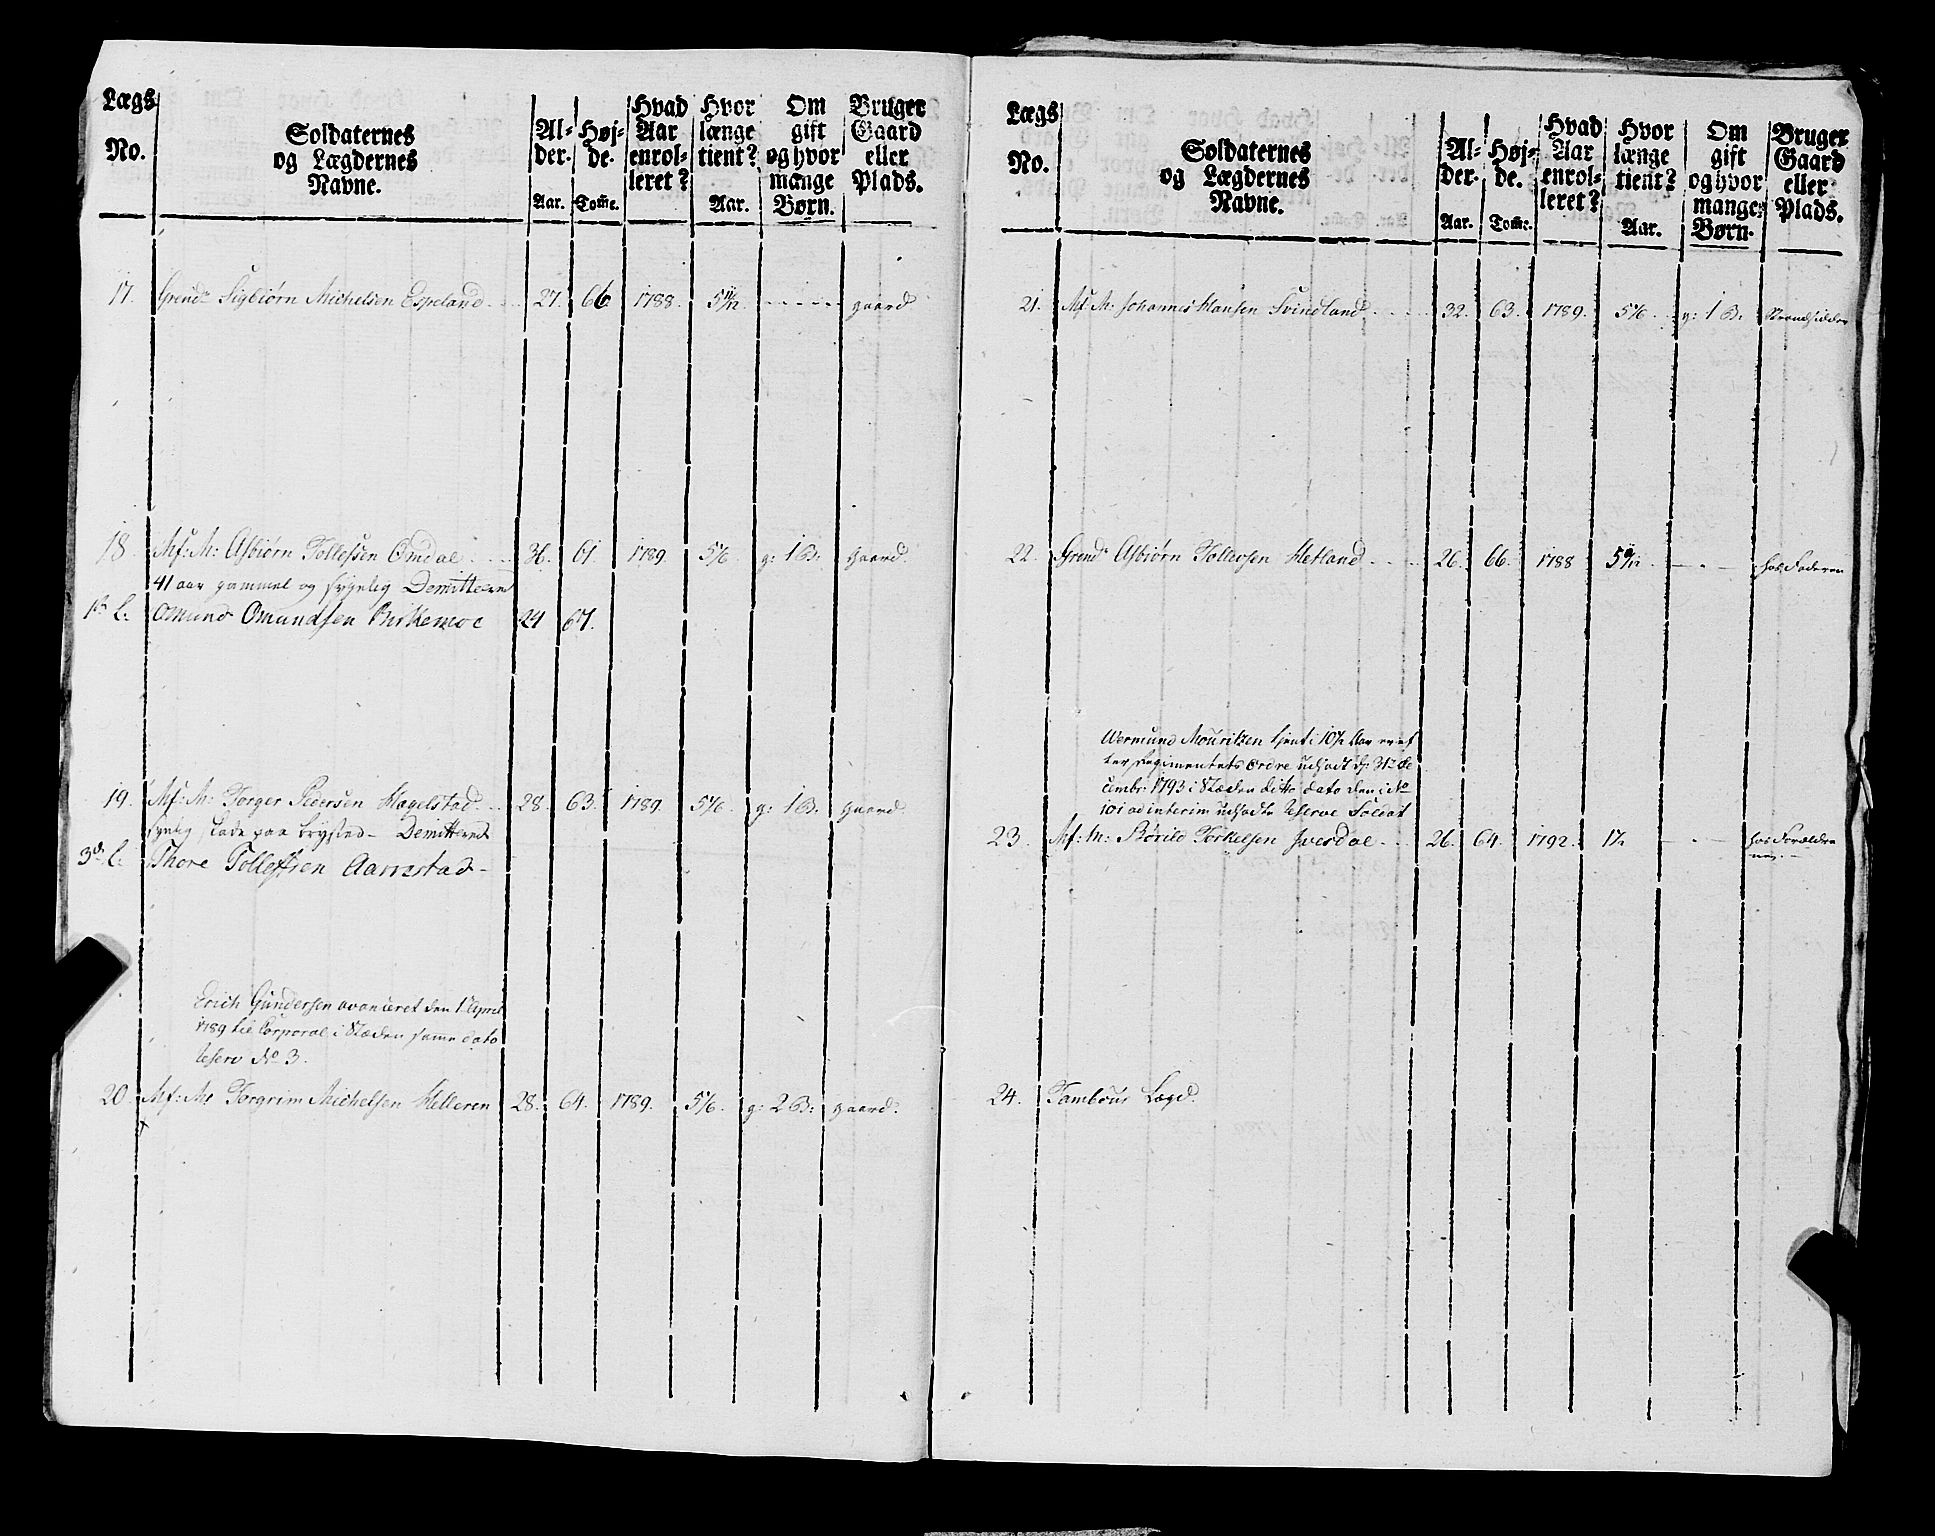 Lægs No. | Soldaternes og Lægdernes Navne. | Al-der. Aar. | Høj-de. Tom̄e. | Hvad Aar enrol-leret? | Hvor længe tient? Aar. | Om gift og hvor mange Børn. | Bruger Gaard eller Plads.
17. Grend. Sigbiørn Michelsen Espeland 27. 66 1788. 5 11/12 - - - - gaard
18. Mf: M: Asbiørn Tollefsen Omdal 36. 61. 1789. 5 1/6. g: 1 B: gaard.
41 aar gammel og sygelig Demitteres
1st. l. Omund Omundsen Birkemoe 24 67.
19. Mf: M: Torger Pedersen Hagelstad 28. 63. 1789. 5 1/6. g: 1 B: gaard.
syglig, paa brysted - Demitteres
3d. l. Thore Tollefsen Aarrestad -
Erich Gundersen avanceret den 1t April
1789 til Corporal i Stæden samme dato
Reserv No 3.
20. Mf: M: Torgrim Michelsen Helleren 28. 64. 1789. 5 1/6. g: 2 B: gaard.
Lægs No. | Soldaternes og Lægdernes Navne. | Al-der. Aar. | Høj-de. Tom̄e. | Hvad Aar enrol-leret? | Hvor længe tient? Aar. | Om gift og hvor mange Børn. | Bruger Gaard eller Plads.
21. Mf: M: Johannes Hansen Svindland 32. 63. 1789. 5 1/6. g: 1 B: Strandsidder
22. Grend. Asbiørn Tollersen Hetland 26. 66. 1788 5 9/12 - - - hos Faderen
Wermund Mouritzen tient i 10 1/2 Aar er ef
ter Regimentets ordre udsadt d: 31te De
cembr: 1793 i Stæden ditto dato den i No
101 ad interim udsadte Reserve Soldat
23. Mf: M: Børild Torkelsen Ivesdal 26. 64. 1792. 1 1/2 - - - hos Forældre
ne. -
24. Tambour Lægd.